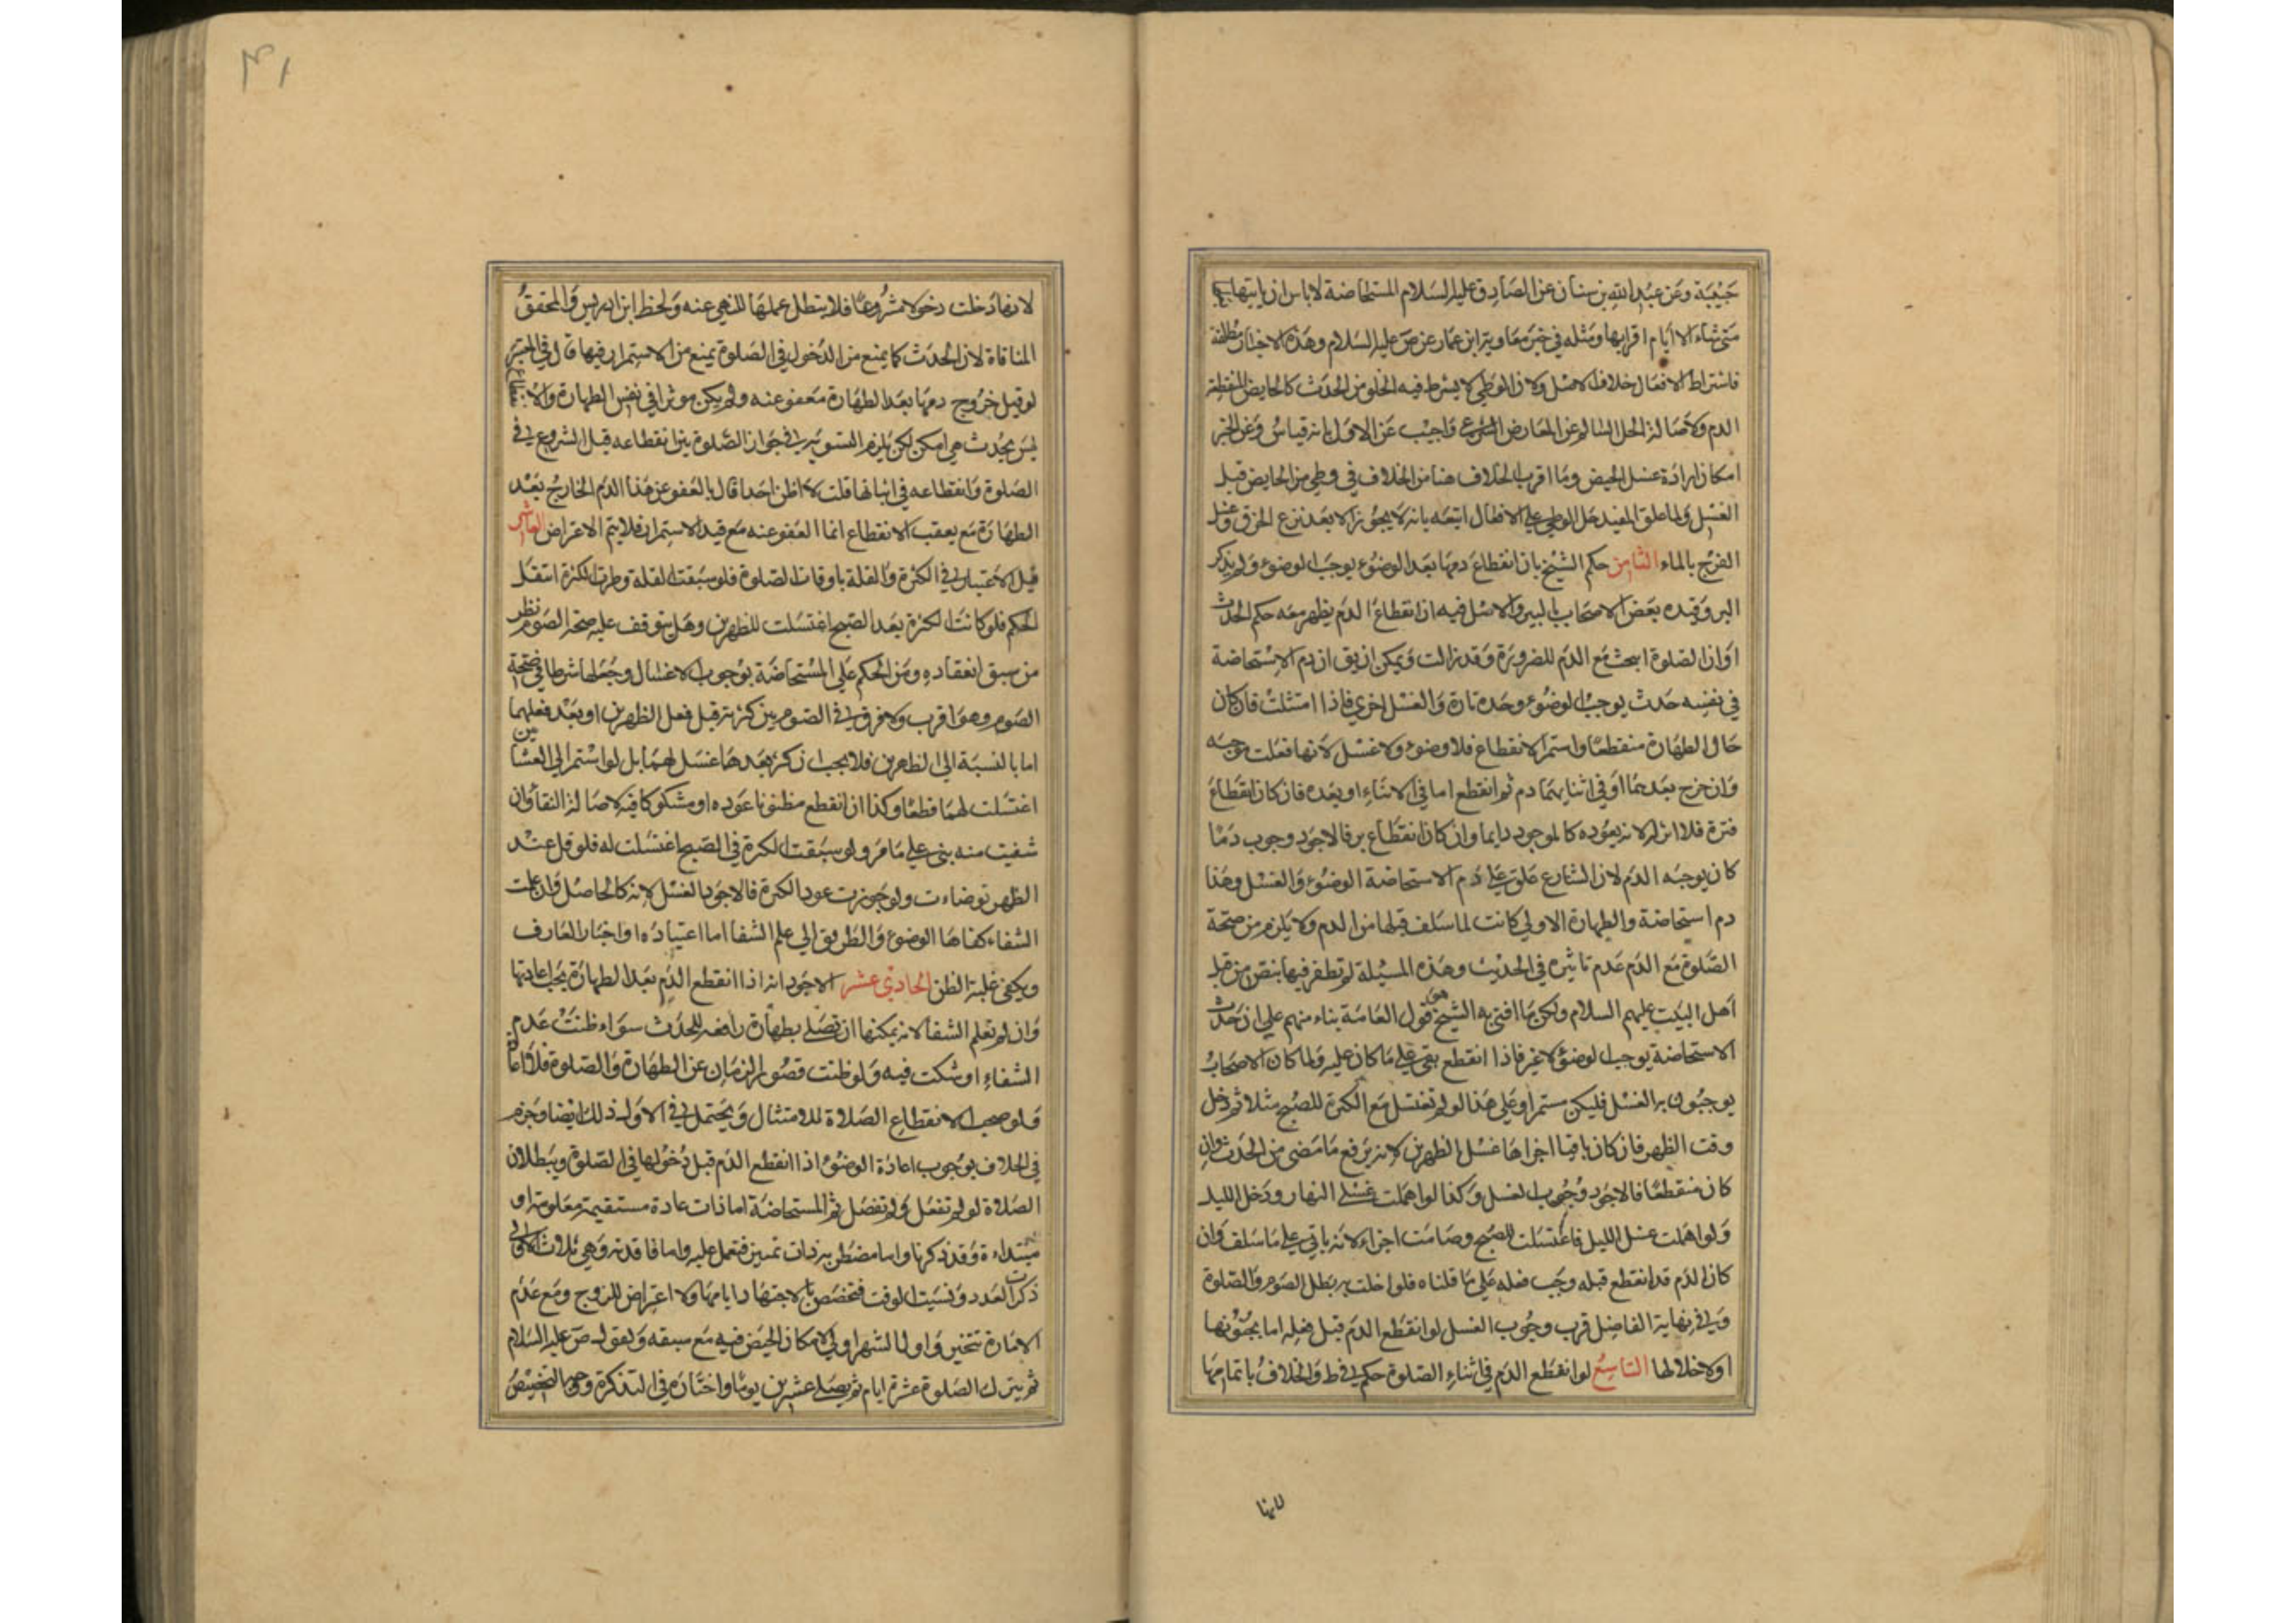 حبيبة وعن عبد الله بن سنان عن الصادق عليه السلام المستحاضة لا باس ان ياتيها بعلها
متى شاء الا ايام اقرائها ومثله في خبر معاوية ابن عمار عن ص عليه السلام وهذه الاخبار مطلقة
فاشتراط الافعال خلاف الاصل ولان الوطي لا يشترط فيه الخلو من الحدث كالحايض المنقطعة
الدم ولاصالة الحل السالم عن المعارض الشرعي واجيب عن الاول بانه قياس وعن الخبر
امكان ارادة غسل الحيض وما اقرب الخلاف هنا من الخلاف في وطي من الحايض قبل
الغسل ولما علق المفيد حل الوطي على الافعال اتبعه بانه لا يجوز الا بعد نزع الخرق وغسل
الفرج بالماء الثامن حكم الشيخ بان انقطاع دمها بعد الوضوء يوجب الوضوء ولم يذكر
البرء وقيده بعض الاصحاب بالبرء والاصل فيه ان انقطاع الدم يظهر معه حكم الحدث
او ان الصلوة ابيحت مع الدم للضرورة وقد زالت ويمكن ان يق ان دم الاستحاضة
في نفسه حدث يوجب الوضوء وحده تارة والغسل اخرى فاذا امتثلت فان كان
حال الطهارة منقطعا واستمر الانقطاع فلا وضوء ولا غسل لانها فعلت موجبه
وان خرج بعدهما او في اثنايهما دم ثم انقطع اما في الاثناء او بعده فان كان انقطاع
فترة فلا اثر له لانه بعوده كالموجود دايما وان كان انقطاع برء فالاجود وجوب دما
كان يوجبه الدم لان الشارع علق على دم الاستحاضة الوضوء والغسل وهذا
دم استحاضة والطهارة الاولى كانت لما سلف قبلها من الدم ولا يلزم من صحة
الصلوة مع الدم عدم تاثيره في الحديث وهذه المسيلة لم نظفر فيها بنص من قبل
اهل البيت عليهم السلام ولكن ما افتى به الشيخ هو قول العامة بناء منهم على ان حدث
الاستحاضة يوجب الوضوء لا غير فاذا انقطع بقي على ما كان عليه ولما كان الاصحاب
يوجبون به الغسل فليكن مستمرا وعلى هذا لو لم تغتسل مع الكثرة للصبح مثلا ثم دخل
وقت الظهر فان كان باقيا اجزاها غسل الظهرين لانه يرفع ما مضى من الحدث وان
كان منقطعا فالاجود وجوب الغسل وكذا لو اهملت غسلي النهار ودخل الليل
ولو اهملت غسل الليل فاغتسلت للصبح وصامت اجزاء لانه ياتي على ما سلف وان
كان الدم قد انقطع قبله وجب فعله على ما قلناه فلو اخلت به بطل الصوم والصلوة
وفي نهاية الفاضل قرب وجوب الغسل لو انقطع الدم قبل فعله اما بجنونها
او لاخلالها التاسع لو انقطع الدم في اثناء الصلوة حكم في ط والخلاف باتمامها
لانها
٣١
لانها دخلت دخولا مشروعا فلا يبطل عملها للنهي عنه ولحظ ابن ادريس والمحقق
المنافاة لان الحدث كما يمنع من الدخول في الصلوة يمنع من الاستمرار فيها قال في المعتبر
لو قيل خروج دمها بعد الطهارة معفو عنه ولم يكن موثرا في نقض الطهارة والانقطاع
ليس بحدث هي امكن لكن يلزم التسوية في جواز الصلوة بين انقطاعه قبل الشروع في
الصلوة وانقطاعه في اثنائها قلت لا اظن احدا قال بالعفو عن هذا الدم الخارج بعد
الطهارة مع يعقب الانقطاع انما العفو عنه مع قيد الاستمرار فلا يتم الاعتراض العاشر
قيل الاعتبار في الكثرة والقلة باوقات الصلوة فلو سبقت القلة وطرت الكثرة انتقل
الحكم فلو كانت الكثرة بعد الصبح اغتسلت للظهرين وهل يتوقف عليه صحة الصوم نظر
من سبق انعقاده ومن الحكم على المستحاضة بوجوب الاغسال وجعلها شرطا في صحة
الصوم وهو اقرب ولا فرق في الصوم بين كثرته قبل فعل الظهرين او بعد فعلهما
اما بالنسبة الى الظهرين فلا يجب ان كثر بعدهما غسل لهما بل لو استمر الى العشاءين
اغتسلت لهما قطعا وكذا ان انقطع مظنونا عوده او مشكوكا فيه لاصالة النقاء وان
شفيت منه بني على ما مر ولو سبقت الكثرة في الصبح اغتسلت له فلو قل عند
الظهر توضاءت ولو جوزت عود الكثرة فالاجود الغسل لانه كالحاصل وان علمت
الشفاء كفاها الوضوء والطريق الى علم الشفا اما اعتياده او اخبار العارف
ويكفي غلبة الظن الحادي عشر الاجود انه اذا انقطع الدم بعد الطهارة يجب اعادتها
وان لم تعلم الشفا لانه يمكنها ان تصلي بطهارة رافعة للحدث سواء ظنت عدم
الشفاء او شكت فيه ولو ظنت قصور الزمان عن الطهارة والصلوة فلا اعادة
ولو صحب الانقطاع الصلاة للامتثال ويحتمل في الاول ذلك ايضا وجزم
في الخلاف بوجوب اعادة الوضوء اذا انقطع الدم قبل دخولها في الصلوة وببطلان
الصلاة لو لم تفعل ولم تفصل ثم المستحاضة اما ذات عادة مستقيمة معلومة او
مبتداءة وقد ذكرنا واما مضطربة ذات تمييز فتعمل عليه واما فاقدته وهي ثلاث الاولى
ذكرت العدد ونسيت الوقت فتخصص بالاجتهاد ايامها ولا اعتراض للزوج ومع عدم
الامارة تتخير واول الشهر اولى لامكان الحيض فيه مع سبقه ولقول ص عليه السلام
ثم يترك الصلوة عشرة ايام ثم يصلي عشرين يوما واختاره في التذكرة وجوبا التخصيص